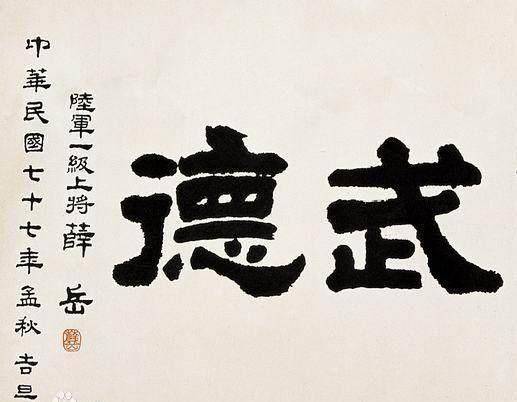 武德
陸軍一級上將薛岳
中華民國七十七年孟秋吉旦